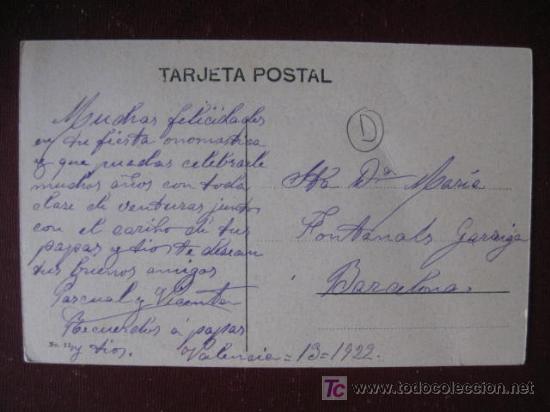 TARJETA POSTAL
Muchas felicidades
en tu fiesta onomastica
y que puedas celebrarle
muchos años con toda
clase de venturas junto
con el cariño de tus
papas y tios te desean
tus buenos amigos
Pascual y Vicenta
Recuerdos á papas
y tios.
Valencia = 13-1922.
D
Srta Dª María
Fontanals
Barcelona
No.
TC www.todocoleccion.net